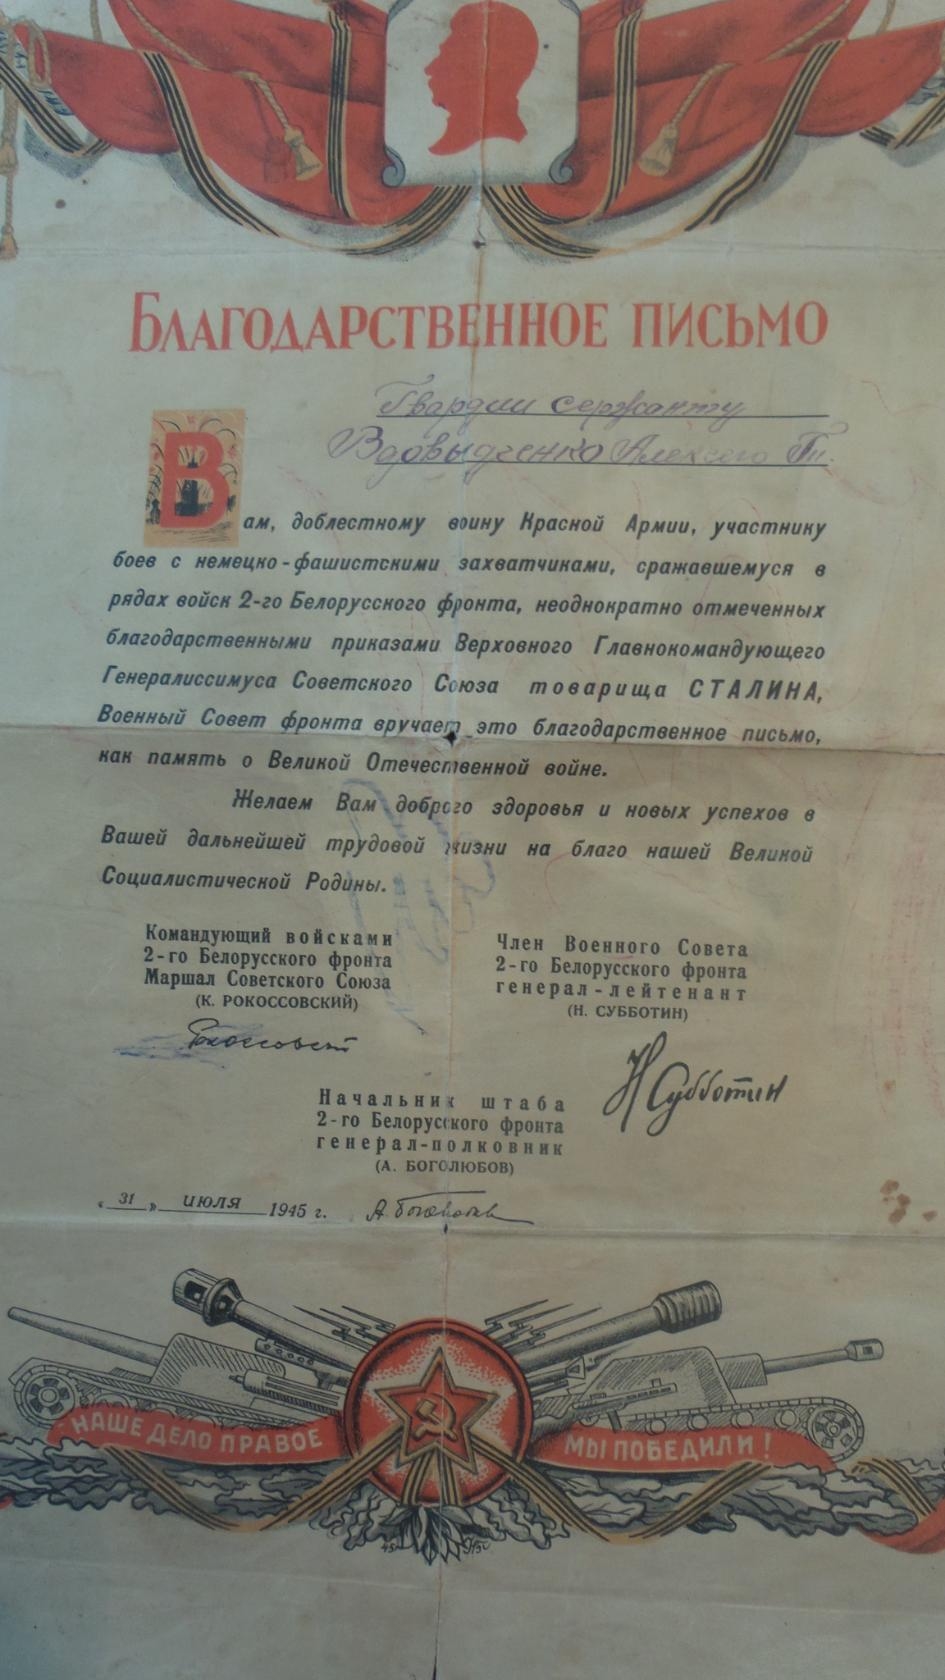 Благодарственное письмо
Гвардии сержанту
Вдовыдченко Алексею Гп.
Вам, доблестному воину Красной Армии, участнику
боев с немецко-фашистскими захватчиками, сражавшемуся в
рядах войск 2-го Белорусского фронта, неоднократно отмеченных
благодарственными приказами Верховного Главнокомандующего
Генералиссимуса Советского Союза товарища СТАЛИНА,
Военный Совет фронта вручает это благодарственное письмо,
как память о Великой Отечественной войне.
Желаем Вам доброго здоровья и новых успехов в
Вашей дальнейшей трудовой жизни на благо нашей Великой
Социалистической Родины.
Командующий войсками
2-го Белорусского фронта
Маршал Советского Союза
(К. РОКОССОВСКИЙ)
Член Военного Совета
2-го Белорусского фронта
генерал-лейтенант
(Н. СУББОТИН)
Н Субботин
Начальник штаба
2-го Белорусского фронта
генерал-полковник
(А. БОГОЛЮБОВ)
"31" июля 1945 г.
НАШЕ ДЕЛО ПРАВОЕ
МЫ ПОБЕДИЛИ!